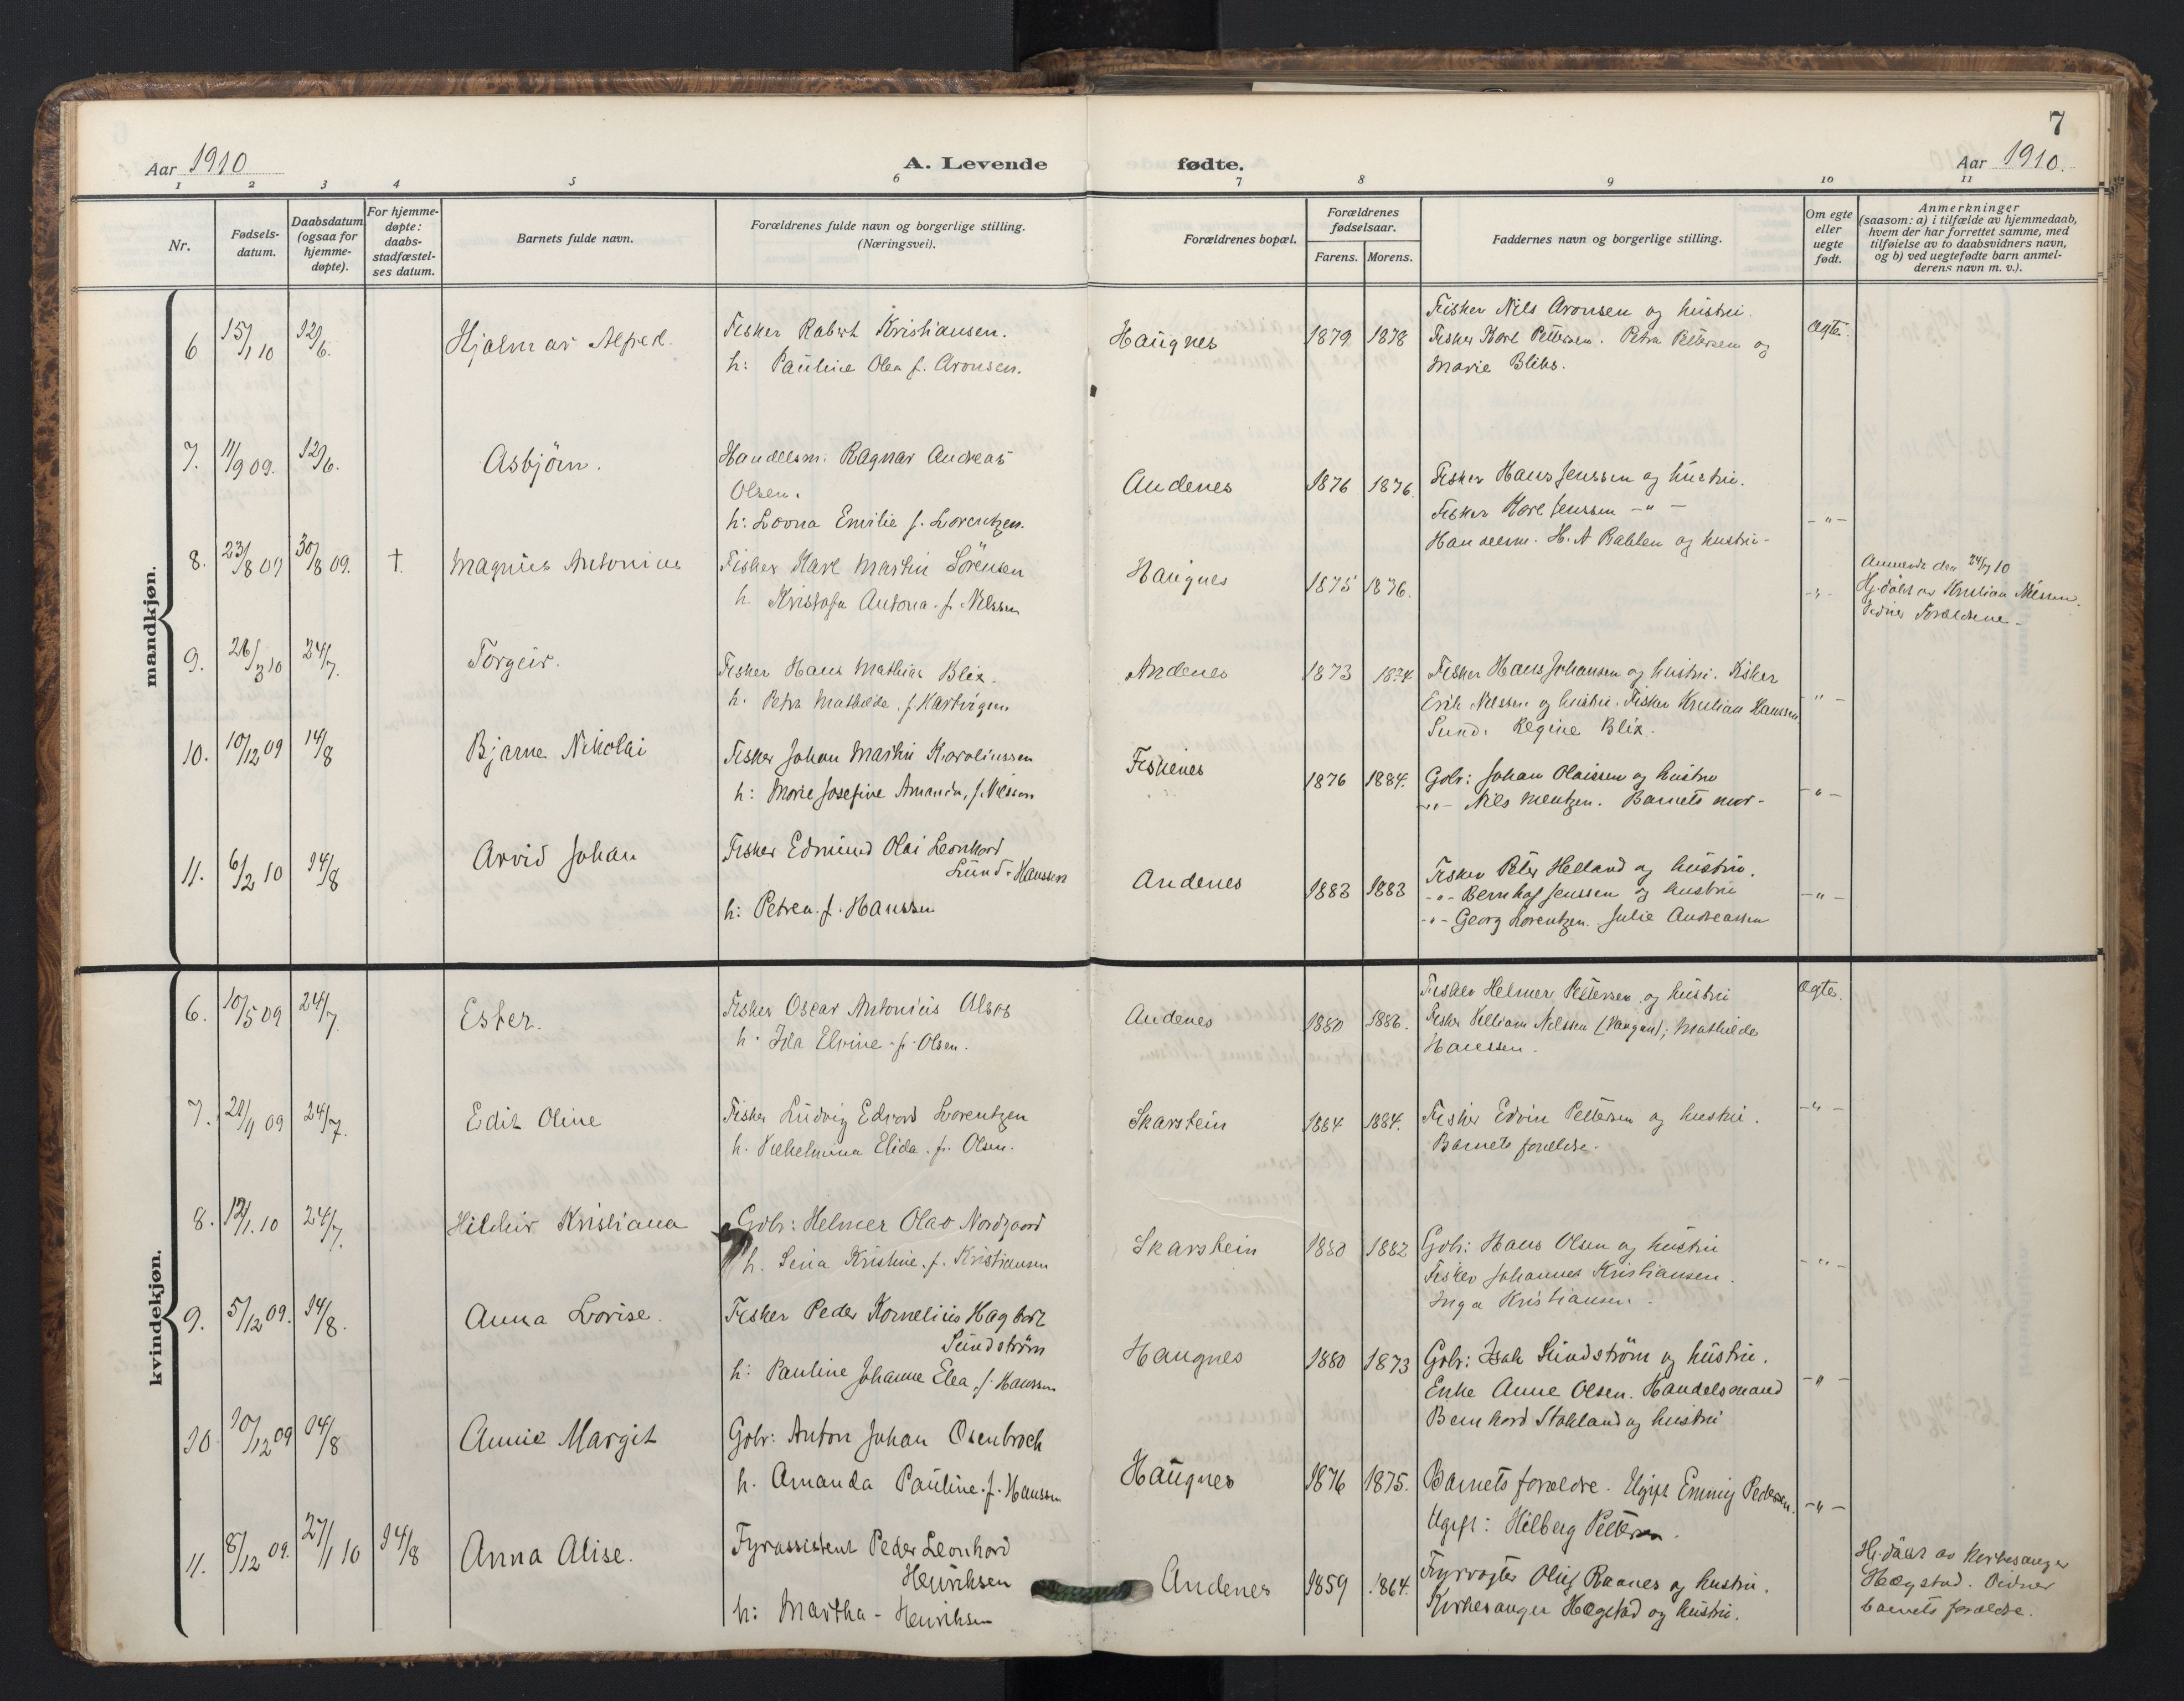 7
Aar 1910
A. Levende
fødte.
Aar 1910.
1 2 3 4 5 6 7 8 9 10 11
Nr.
Fødsels-
datum.
Daabsdatum
(ogsaa for
hjemme-
døpte).
For hjemme-
døpte:
daabs-
stadfæstel-
ses datum.
Barnets fulde navn.
Forældrenes fulde navn og borgerlige stilling.
(Næringsvei).
Forældrenes bopæl.
Forældrenes
fødselsaar.
Farens. Morens.
Faddernes navn og borgerlige stilling.
Om egte
eller
uegte
født.
Anmerkninger
(saasom: a) i tilfælde av hjemmedaab,
hvem der har forrettet samme, med
tilføielse av to daabsvidners navn,
og b) ved uegtefødte barn anmel-
derens navn m. v.).
mandkjøn.
6 15/1 10 12/6. Hjalmar Alfred.
Fisker Robert Kristiansen.
h: Pauline Olea f. Aronsen.
Haugnes 1879 1878
Fisker Nils Aronsen og hustru.
Fisker Karl Pettersen. Petra Pettersen og
Marie Bliks.
Ægte.
7. 11/9 09. 12/6. Asbjörn.
Handelsm. Ragnar Andreas
Olsen.
h: Lovna Emilie f. Lorentzen.
Andenes 1876 1876.
Fisker Hans Jenssen og hustru.
Fisker Karl Jenssen -"-
Handelsm. H. A. og hustru-
-"-
8. 23/8 09 30/8 09. †. Magnus Antonius
Fisker Karl Martin Sörensen
h. Kristofa Antona. f. Nilssen
Haugnes 1875 1876.
-"-
Anmeldt den 24/7 10
Hj.döbt av Kristian Nilssen.
Vidner Forældrene-
9. 26/3 10 24/7. Torgeir.
Fisker Hans Mathias Blix.
h. Petra Mathilde. f. Hartvigsen
Andenes 1873 1874.
Fisker Hans Johansen og hustru. Fisker
Erik Nilssen og hustru. Fisker Kristian Hanssen
Lund. Regine Blix.
-"-
10. 10/12 09 14/8 Bjarne Nikolai
Fisker Johan Martin Karoliussen
h: Marie Josefine Amanda, f. Nilssen
Fiskenes 1876 1884.
Gbr: Johan Olaissen og hustru
-"- Nils Mentzen. Barnets mor-
-"-
11. 6/2 10 14/8 Arvid Johan
Fisker Edmund Olai Leonhard
Lund-Hanssen
h: Petrea. f. Hanssen
Andenes 1883 1883
Fisker Peter Helland og hustru.
-"- Bernhof Jenssen og hustru
-"- Georg Lorentzen. Julie Andreassen
-"-
kvindekjøn.
6. 10/5 09 24/7. Ester.
Fisker Oscar Antonius Alsos
h. Ida Elvine f. Olsen.
Andenes 1880 1886.
Fisker Helmer Pettersen og hustru
Fisker William Nilssen (Vangen); Mathilde
Hanssen.
Ægte.
7. 09 24/7. Edit Oline
Fisker Ludvig Edvard Lorentzen
h. Vilhelmina Elida. f. Olsen.
Skarstein 1884 1884.
Fisker Edvin Pettersen og hustru.
Barnets forældre.
-"-
8. 12/1. 10 24/7. Hildur Kristiana
Gbr: Helmer Olav Nordgaard
h. Sena Kristine. f. Kristiansen
Skarstein 1880 1882
Gbr: Hans Olsen og hustru
Fisker Johannes Kristiansen.
Inga Kristiansen.
-"-
9. 5/12 09. 14/8. Anna Lovise.
Fisker Peder Kornelius Hagbart
Sundström
h: Pauline Johanne Elea. f. Hanssen
Haugnes 1880 1873
Gbr: Isak Sundström og hustru.
Enke Anne Olsen. Handelsmand
Bernhard Stokland og hustru
-"-
10 10/12 09 14/8 Annie Margit
Gbr: Anton Johan Osenbroch
h. Amanda Pauline. f. Hanssen
Haugnes 1876 1875.
Barnets forældre. Ugift Emmy Pedersen.
Ugift: Hilberg Pettersen.
-"-
11. 8/12 09. 27/1 10 14/8 Anna Alise.
Fyrassistent Peder Leonhard
Henriksen
h: Martha - Henriksen
Andenes 1859 1864.
Fyrvogter Oluf Raanes og hustru.
Kirkesanger Hægstad og hustru.
Hj.döbt av Kirkesanger
Hægstad. Vidner
barnets forældre.